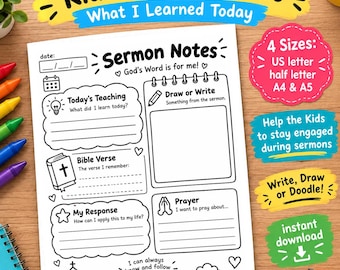 What I Learned Today
date: / /
Sermon Notes
God's Word is for me!
Today's Teaching
What did I learn today?
Draw or Write
Something from the sermon.
Bible Verse
The verse I remember:
My Response
How can I apply this to my life?
Prayer
I want to pray about...
I can always
and follow
4 Sizes:
US letter
half letter
A4 & A5
Help the Kids
to stay engaged
during sermons
Write, Draw
or Doodle!
instant
download